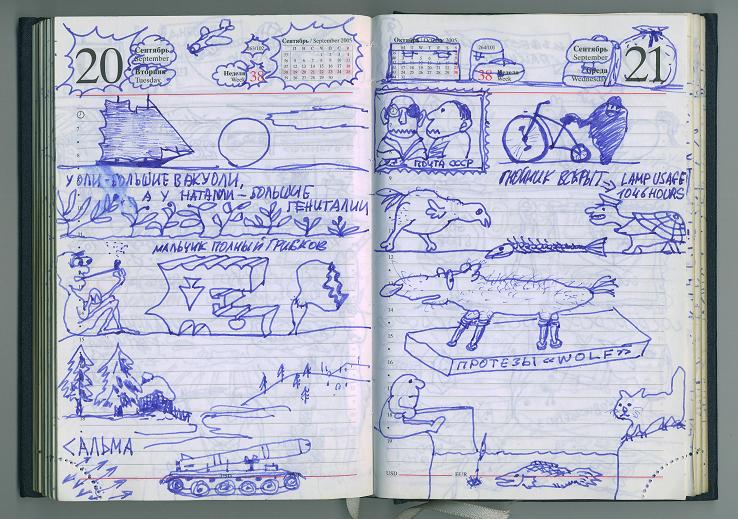 20
Сентябрь
September
Вторник
Tuesday
263/102
Неделя
Week
38
Сентябрь / September 2005
У ОЛИ - БОЛЬШИЕ ВАКУОЛИ,
А У НАТАЛИИ - БОЛЬШИЕ
ГЕНИТАЛИИ
МАЛЬЧИК ПОЛНЫЙ ГРИБКОВ
САЛЬМА
Октябрь / October 2005
264/101
38
Неделя
Week
Сентябрь
September
Среда
Wednesday
21
ПОЧТА СССР
ВСКРЫТ → LAMP USAGE
1046 HOURS
ПРОТЕЗЫ «WOLF»
USD
EUR